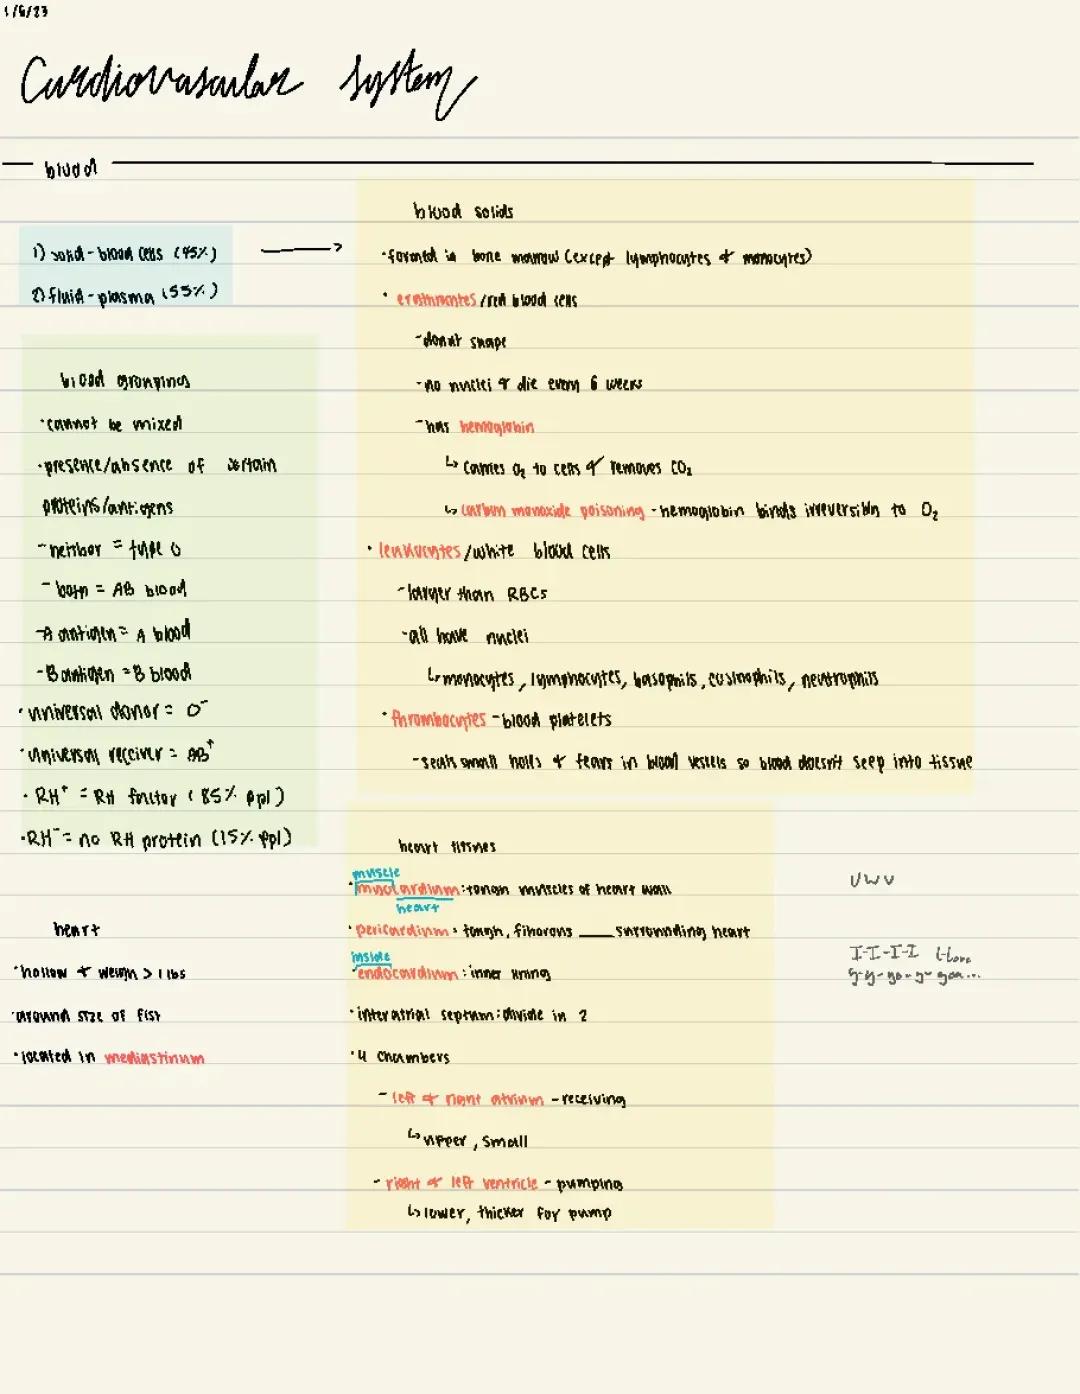 1/6/23
Cardiovascular System
blood
1) solid - blood cells (45%)
2) fluid - plasma (55%)
blood groupings
• cannot be mixed
• presence/absence of certain
proteins/antigens
- neither = type O
- both = AB blood
- A antigen = A blood
- B antigen = B blood
• universal donor = O⁻
• universal reciever = AB⁺
• RH⁺ = RH factor (85% ppl)
• RH⁻ = no RH protein (15% ppl)
heart
• hollow & weigh > 1 lbs
• around size of fist
• located in mediastinum
blood solids
• formed in bone marrow (except lymphocytes & monocytes)
• /red blood cells
- donut shape
- no nuclei & die every 6 weeks
- has hemoglobin
↳ carries O₂ to cells & removes CO₂
↳ carbon monoxide poisoning - hemoglobin binds irreversibly to O₂
• leukocytes/white blood cells
- larger than RBCs
- all have nuclei
↳ monocytes, lymphocytes, basophils, eosinophils, neutrophils
• thrombocytes - blood platelets
- seals small holes & tears in blood vessels so blood doesn't seep into tissue
heart tissues
muscle
• myocardium: tough muscles of heart wall
heart
• pericardium: tough, fibrous ____ surrounding heart
inside
• endocardium: inner lining
• interatrial septum: divide in 2
• 4 chambers
- left & right atrium - receiving
↳ upper, small
- right & left ventricle - pumping
↳ lower, thicker for pump
UWU
I-I-I-I